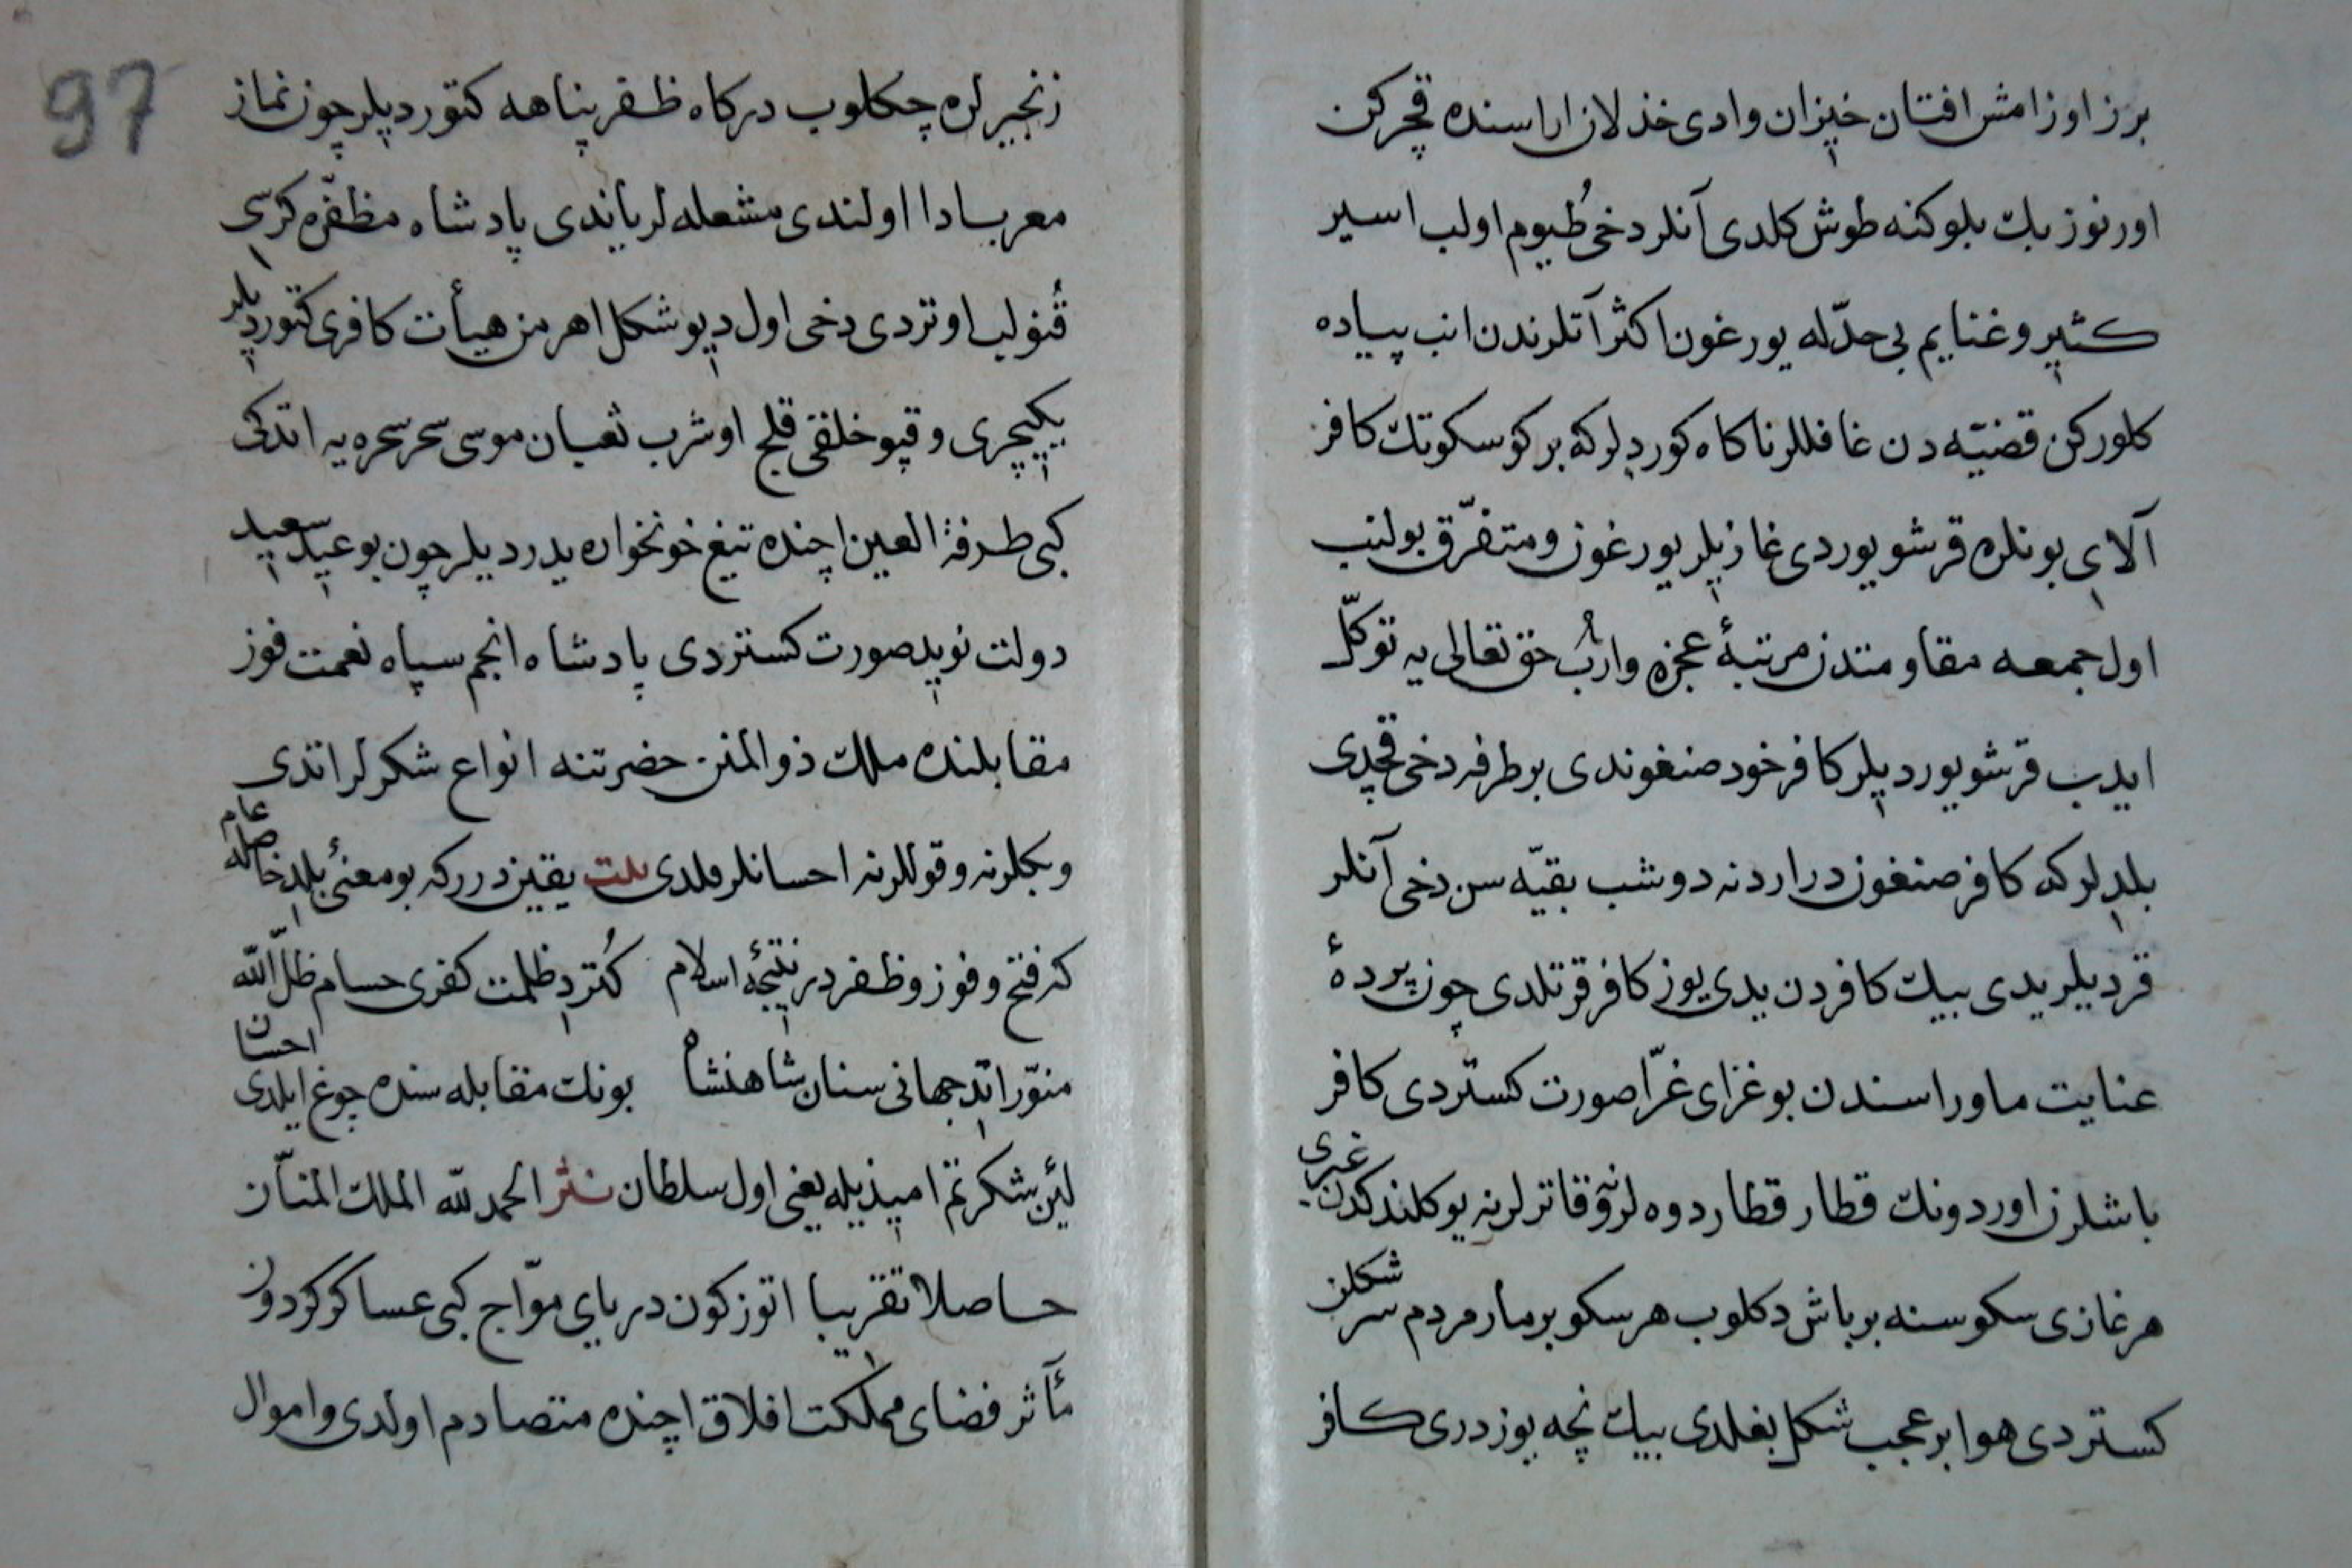 برز اوزامش افتان خیزان وادی خذلان اراسنده قچرکن
اورنوز بك بلوکنه طوش کلدی آنلر دخی طیوم اولب اسیر
کثیر و غنایم بی حدّله یورغون اکثر آتلرندن انب پیاده
کلورکن قضیّه دن غافللر ناکاه کوردیلر که بر کوسکوتك کافر
آلای بونلره قرشو یوردی غازیلر یورغون و متفرّق بولنب
اول جمعه مقاومتدن مرتبۀ عجزه وارب حق تعالی یه توکّل
ایدب قرشو یوردیلر کافر خود صنغوندی بر طرفه دخی قچدی
بلدیلر که کافر صنغوندر اردنه دوشب بقیّه سن دخی آنلر
قردیلر یدی بیك کافردن یدی یوز کافر قرتلدی چون پردۀ
عنایت ماوراسندن بو غزای غرّا صورت کستردی کافر
باشلرن اوردونك قطار قطار دوه لرنه و قاترلرنه یوکلندکدن غیری
هر غازی سکوسنه بر باش دکلوب هر سکو بر مار مردم سر شکلن
کستردی هوا بر عجب شکل بغلدی بیك نچه یوز دری کافر
97
زنجیرلره چکلوب درکاه ظفر پناهه کتوردیلر چون نماز
مغرب ادا اولندی مشعله لر یاندی پادشاه مظفّره کرسی
قنولیب اوتردی دخی اول دیو شکل اهرمن هیأت کافری کتوردیلر
یکیچری و قپو خلقی قلج اوشرب ثعبان موسی سحر سحره یه اتدکی
کبی طرفة العین اچنده تیغ خونخواره یدردیلر چون بو عید سعید
دولت نوید صورت کستردی پادشاه انجم سپاه نعمت فوز
مقابلنده ملك ذو المنن حضرتنه انواع شکرلر اتدی
و بکلرنه و قوللرنه احسانلر قلدی بیت یقین در که بو معنی بلد خاصله عام
که فتح و فوز و ظفر در نتیجۀ اسلام کتردی ظلمت کفری حسام ظلّ اللّه
منوّر اتدی جهانی سنان شاهنشاه بونك مقابله سنده چوغ ایلدی احسان
لئن شکرتم امیذیله یعنی اول سلطان نثر الحمد للّه الملك المنّان
حاصلا تقریبا اتوز کون دریای موّاج کبی عساکر کردون
مآثر فضای مملکت افلاق اچنده متصادم اولدی و اموال